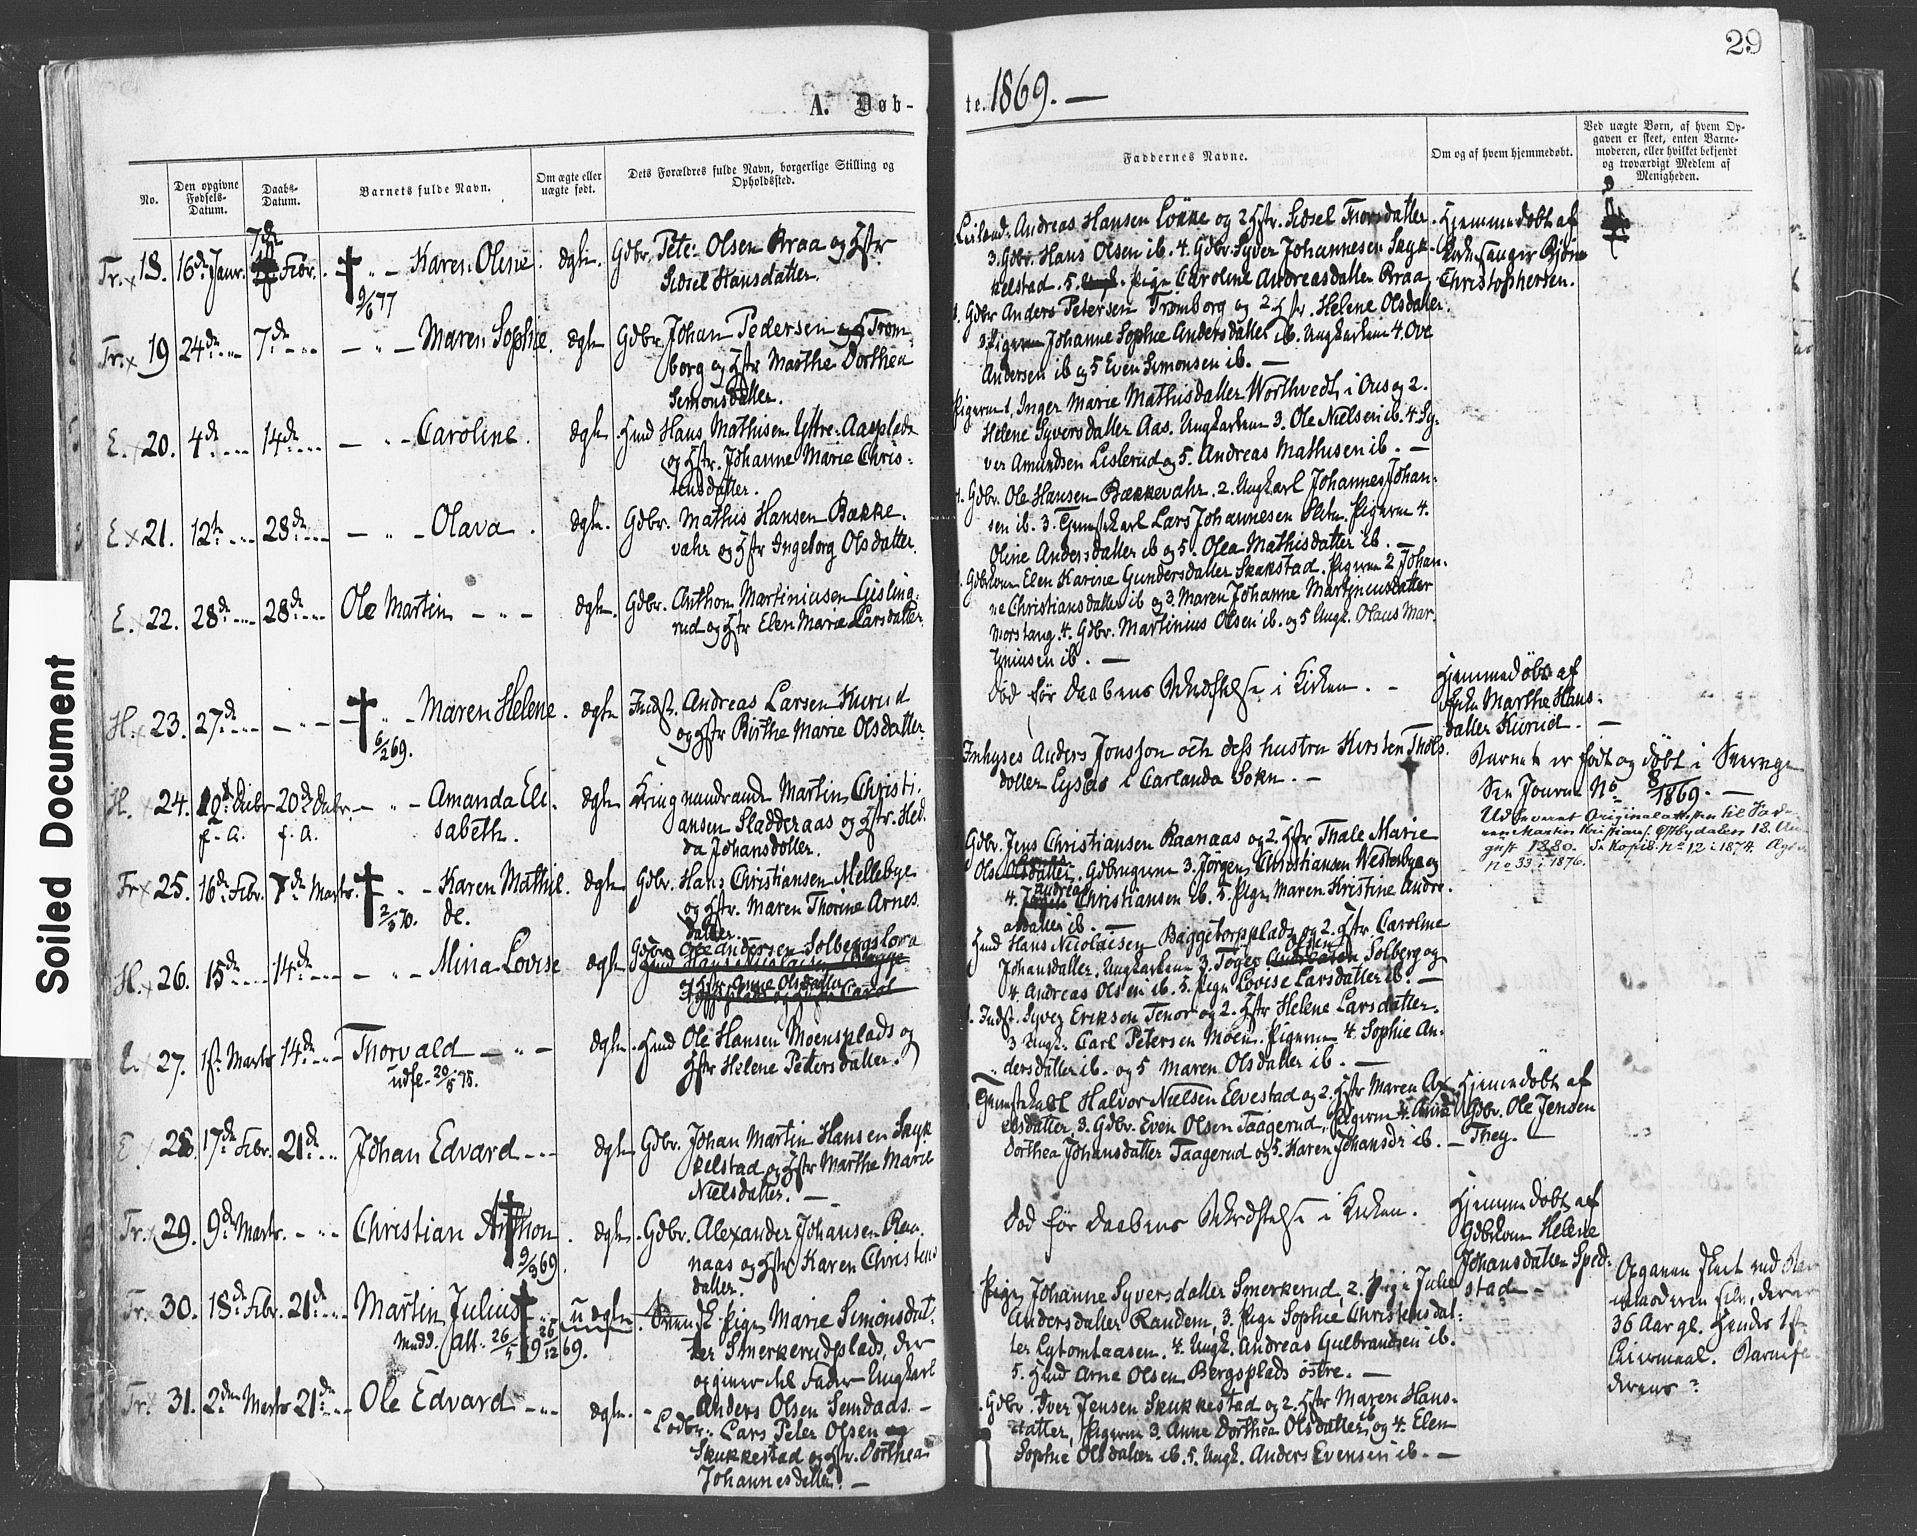 29
A. Døb-
te. 1869. —
No.
Den opgivne Fødsels-Datum.
Daabs-Datum.
Barnets fulde Navn.
Om ægte eller uægte født.
Dets Forældres fulde Navn, borgerlige Stilling og Opholdssted.
Faddernes Navne.
Om og af hvem hjemmedøbt.
Ved uægte Børn, af hvem Op-
gaven er skeet, enten Barne-
moderen, eller hvilket bekjendt
og troværdigt Medlem af
Menigheden.
Tr. x 18. 16de Janr. 7de Febr. † " – Karen Oline. ægte. Gdbr. Peter Olsen Braa og Hstr
9/6 77 Sidsel Hansdatter.
Andreas Hansen Løkke og 2 Hstr. Sidsel Thorsdatter
3. Gdbr. Hans Olsen ib. 4. Gdbr. Syver Johannesen Skyk-
kelstad. 5. Pige Caroline Andreasdatter Braa
Hjemmedøbt af
Kirkesanger Bjørn
Christophersen.
Tr. x 19 24de 7de — " — Maren Sophie ægte Gdbr. Johan Pedersen Trøm-
borg og Hstr Marthe Dorthea
Simonsdatter.
1. Gdbr Anders Petersen Trømborg og 2 Hstr. Helene Olsdatter.
Johanne Sophie Andersdatter ib. Ungkarlene 4. Ove
Andersen ib og 5 Even Simonsen ib. —
E. x 20. 4de 14de — " – Caroline. ægte Hmd Hans Mathisen Yttre-Aasplads
og Hstr. Johanne Marie Chris-
tensdatter.
Pigerne 1, Inger Marie Mathisdatter Worthvedt i Ous og 2.
Helene Syversdatter Aas. Ungkarlene 3. Ole Nielsen ib. 4. Sy-
ver Amundsen Lislerud og 5. Andreas Mathisen ib. —
E x 21. 12te 28de — " – Olava. ægte. Gdbr. Mathis Hansen Bække-
vahr og Hstr Ingeborg Olsdatter.
1. Gdbr. Ole Hansen Bækkevahr. 2. Ungkarl Johannes Johan-
sen ib. 3. Tjenstekarl Lars Johannesen Pigerne 4.
Oline Andersdatter ib og 5. Olea Mathisdatter ib. —
E. x 22. 28de 28de Ole Martin — " — ægte Gdbr. Anthon Martiniusen Gisling-
rud og Hstr Elen Marie Larsdatter.
Elen Karine Gundersdatter Skakstad. Pigerne 2 Johan-
ne Christiansdatter ib og 3. Maren Johanne Martiniusdatter
Morstang. 4. Gdbr. Martinius Olsen ib. og 5 Ungk. Olaus Mar-
tiniusen ib. —
H. x 23. 27de — " — † " – Maren Helene. ægte Indst. Andreas Larsen Kurud
6/2 69. og Hstr Birthe Marie Olsdatter.
Død før Daabens Stadfestelse i Kirken. –
Hjemmedøbt af
Enke Marthe Hans-
datter Kurud. —
H. x 24. 20de Debr. — " – Amanda Eli- ægte Martin Christi-
f. A. f. A. sabeth. ansen Sladderaas og Hstr. Hed-
da Johansdotter.
Inhyses Anders Jonsson och dess hustru Kirsten
dotter Lysås i Carlanda Sokn. —
Barnet er født og døbt i Sverige
Se Journ No 8/1869. —
Udleveret Originalattesten til Fade-
ren Martin Kristians. Østbydalen 18. Au-
gust 1880. Se Kopib. No 12 i 1874.
No 33 i 1876.
Tr x 25. 16de Febr. 7de Marts. † " – Karen Mathil- ægte Gdbr. Hans Christiansen Møllebye
2/3 70. de. og Hstr. Maren Thorine Arnes-
datter.
Gdbr. Jens Christiansen Raanaas og 2. Hstr Thale Marie
Olsdatter. Gdbrugerne 3. Jørgen Christiansen Westerbye og
4. Andreas Christiansen ib. 5. Pige Maren Kristine Andre-
asdatter ib. —
H. x 26. 15de 14de — " – Mina Lovise ægte Ole Andersen Solbergslora
og Hstr Anne Olsdatter
Hmd Hans Nicolaisen Baggetorpplads og 2. Hstr. Caroline
Johansdatter. Ungkarlene 3. Olsen Solberg og
4. Andreas Olsen ib. 5. Pige Lovise Larsdatter ib. —
E. x 27. 1ste Marts 14de Thorvald — " — ægte Hmd Ole Hansen Moensplads og
udfl. 20/5 95. Hstr Helene Petersdatter.
1. Indst. Syver Eriksen Tenor og 2. Hstr Helene Larsdatter.
3 Ungk. Carl Petersen Moen. Pigerne 4. Sophie An-
dersdatter ib. og 5 Maren Olsdatter ib. —
E. 28. 17de Febr. 21de Johan Edvard – " – ægte Gdbr. Johan Martin Hansen Skyk-
kelstad og Hstr Marthe Marie
Nielsdatter. —
Tjenstekarl Halvor Nielsen Elvestad og 2. Hstr Maren Ax-
elsdatter, 3. Gdbr. Even Olsen Taagerud, Pigerne 4.
Dorthea Johansdatter Taagerud og 5. Karen Johansdr ib. –
Hjemmedøbt af
Gdbr. Ole Jensen
They. —
Tr. x 29. 9de Marts. – " – Christian Anthon † ægte. Gdbr. Alexander Johansen Raa-
9/3 69. naas og Hstr Karen Christens-
datter.
Død før Daabens Stadfestelse i Kirken.
Hjemmedøbt af
Gdbrkone Helene
Johansdatter Sped-
stad –
Tr. 30. 18de Febr. 21de Martin Julius † " – uægte. Pige Marie Simonsdat-
Medd. Att. 26/5 26/12 69. ter Smerkerudplads, der
opgiver til Fader Ungkarl
Anders Olsen Sendaas. –
Pige Johanne Syversdatter Smerkerud, 2. Pige Julie
Andersdatter Randem, 3. Pige Sophie Christensdat-
ter Lytomtaasen. 4. Ungk. Andreas Gulbrandsen ib.
5. Hmd Arne Olsen Bergsplads østre. —
Opgaven skeet ved Bar-
nemoderen selv, der er
36 Aar gl. Hendes 1ste
Leiermaal. Barnefa-
derens ?
Tr. x 31. 2den Marts 21de Ole Edvard – " – ægte. – Lodbr. Lars Peter Olsen
Skukkestad og Hstr. Dorthea
Johannesdatter. —
Gdbr. Iver Jensen Skukkestad og 2. Hstr Maren Hans-
datter, Pigerne 3. Anne Dorthea Olsdatter og 4. Elen
Sophie Olsdatter ib. 5. Ungk. Anders Evensen ib. —
Soiled Document